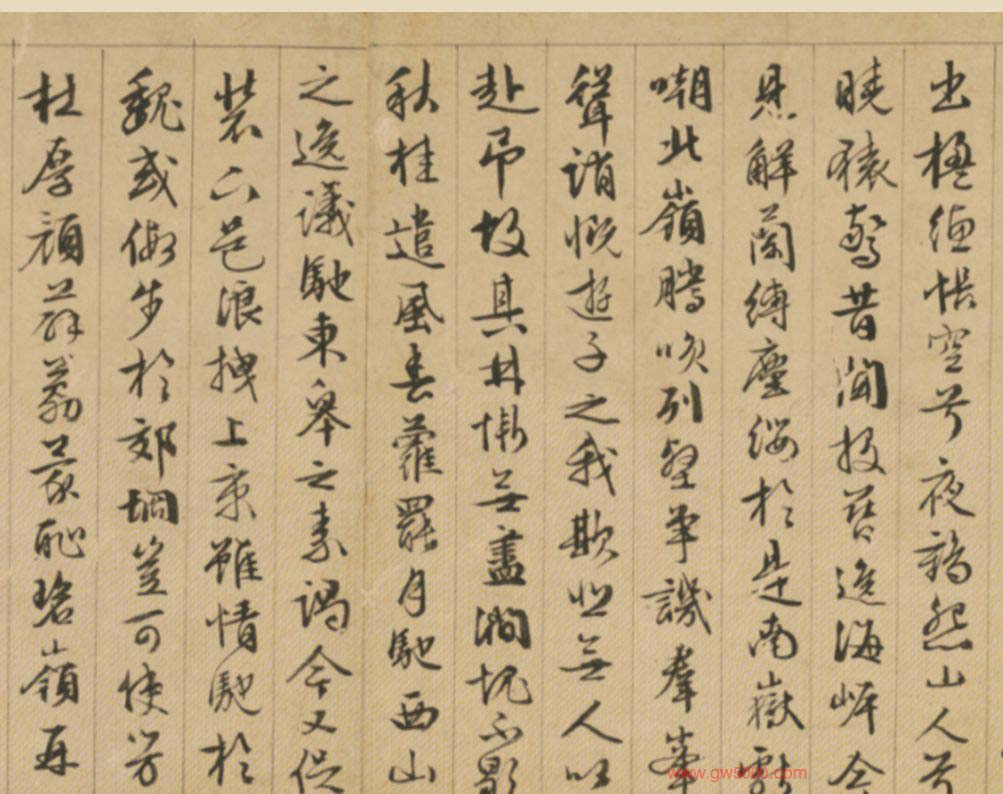 出楹德帳空兮夜鶴怨山人兮
曉猿驚昔聞投簪逸海岸今
見解蘭縛塵纓於是南嶽獻
嘲北嶺騰笑列壑爭譏羣峯
聳誚慨遊子之我欺悲無人以
赴弔故其林慚無盡澗愧不歇
秋桂遣風春蘿罷月馳西山
之逸議馳東皋之素謁今又促
裝下邑浪拽上京雖情馳於
魏或假步於郊坰豈可使芳
杜厚顏薜荔蒙恥碧嶺再
www.gw5000.com